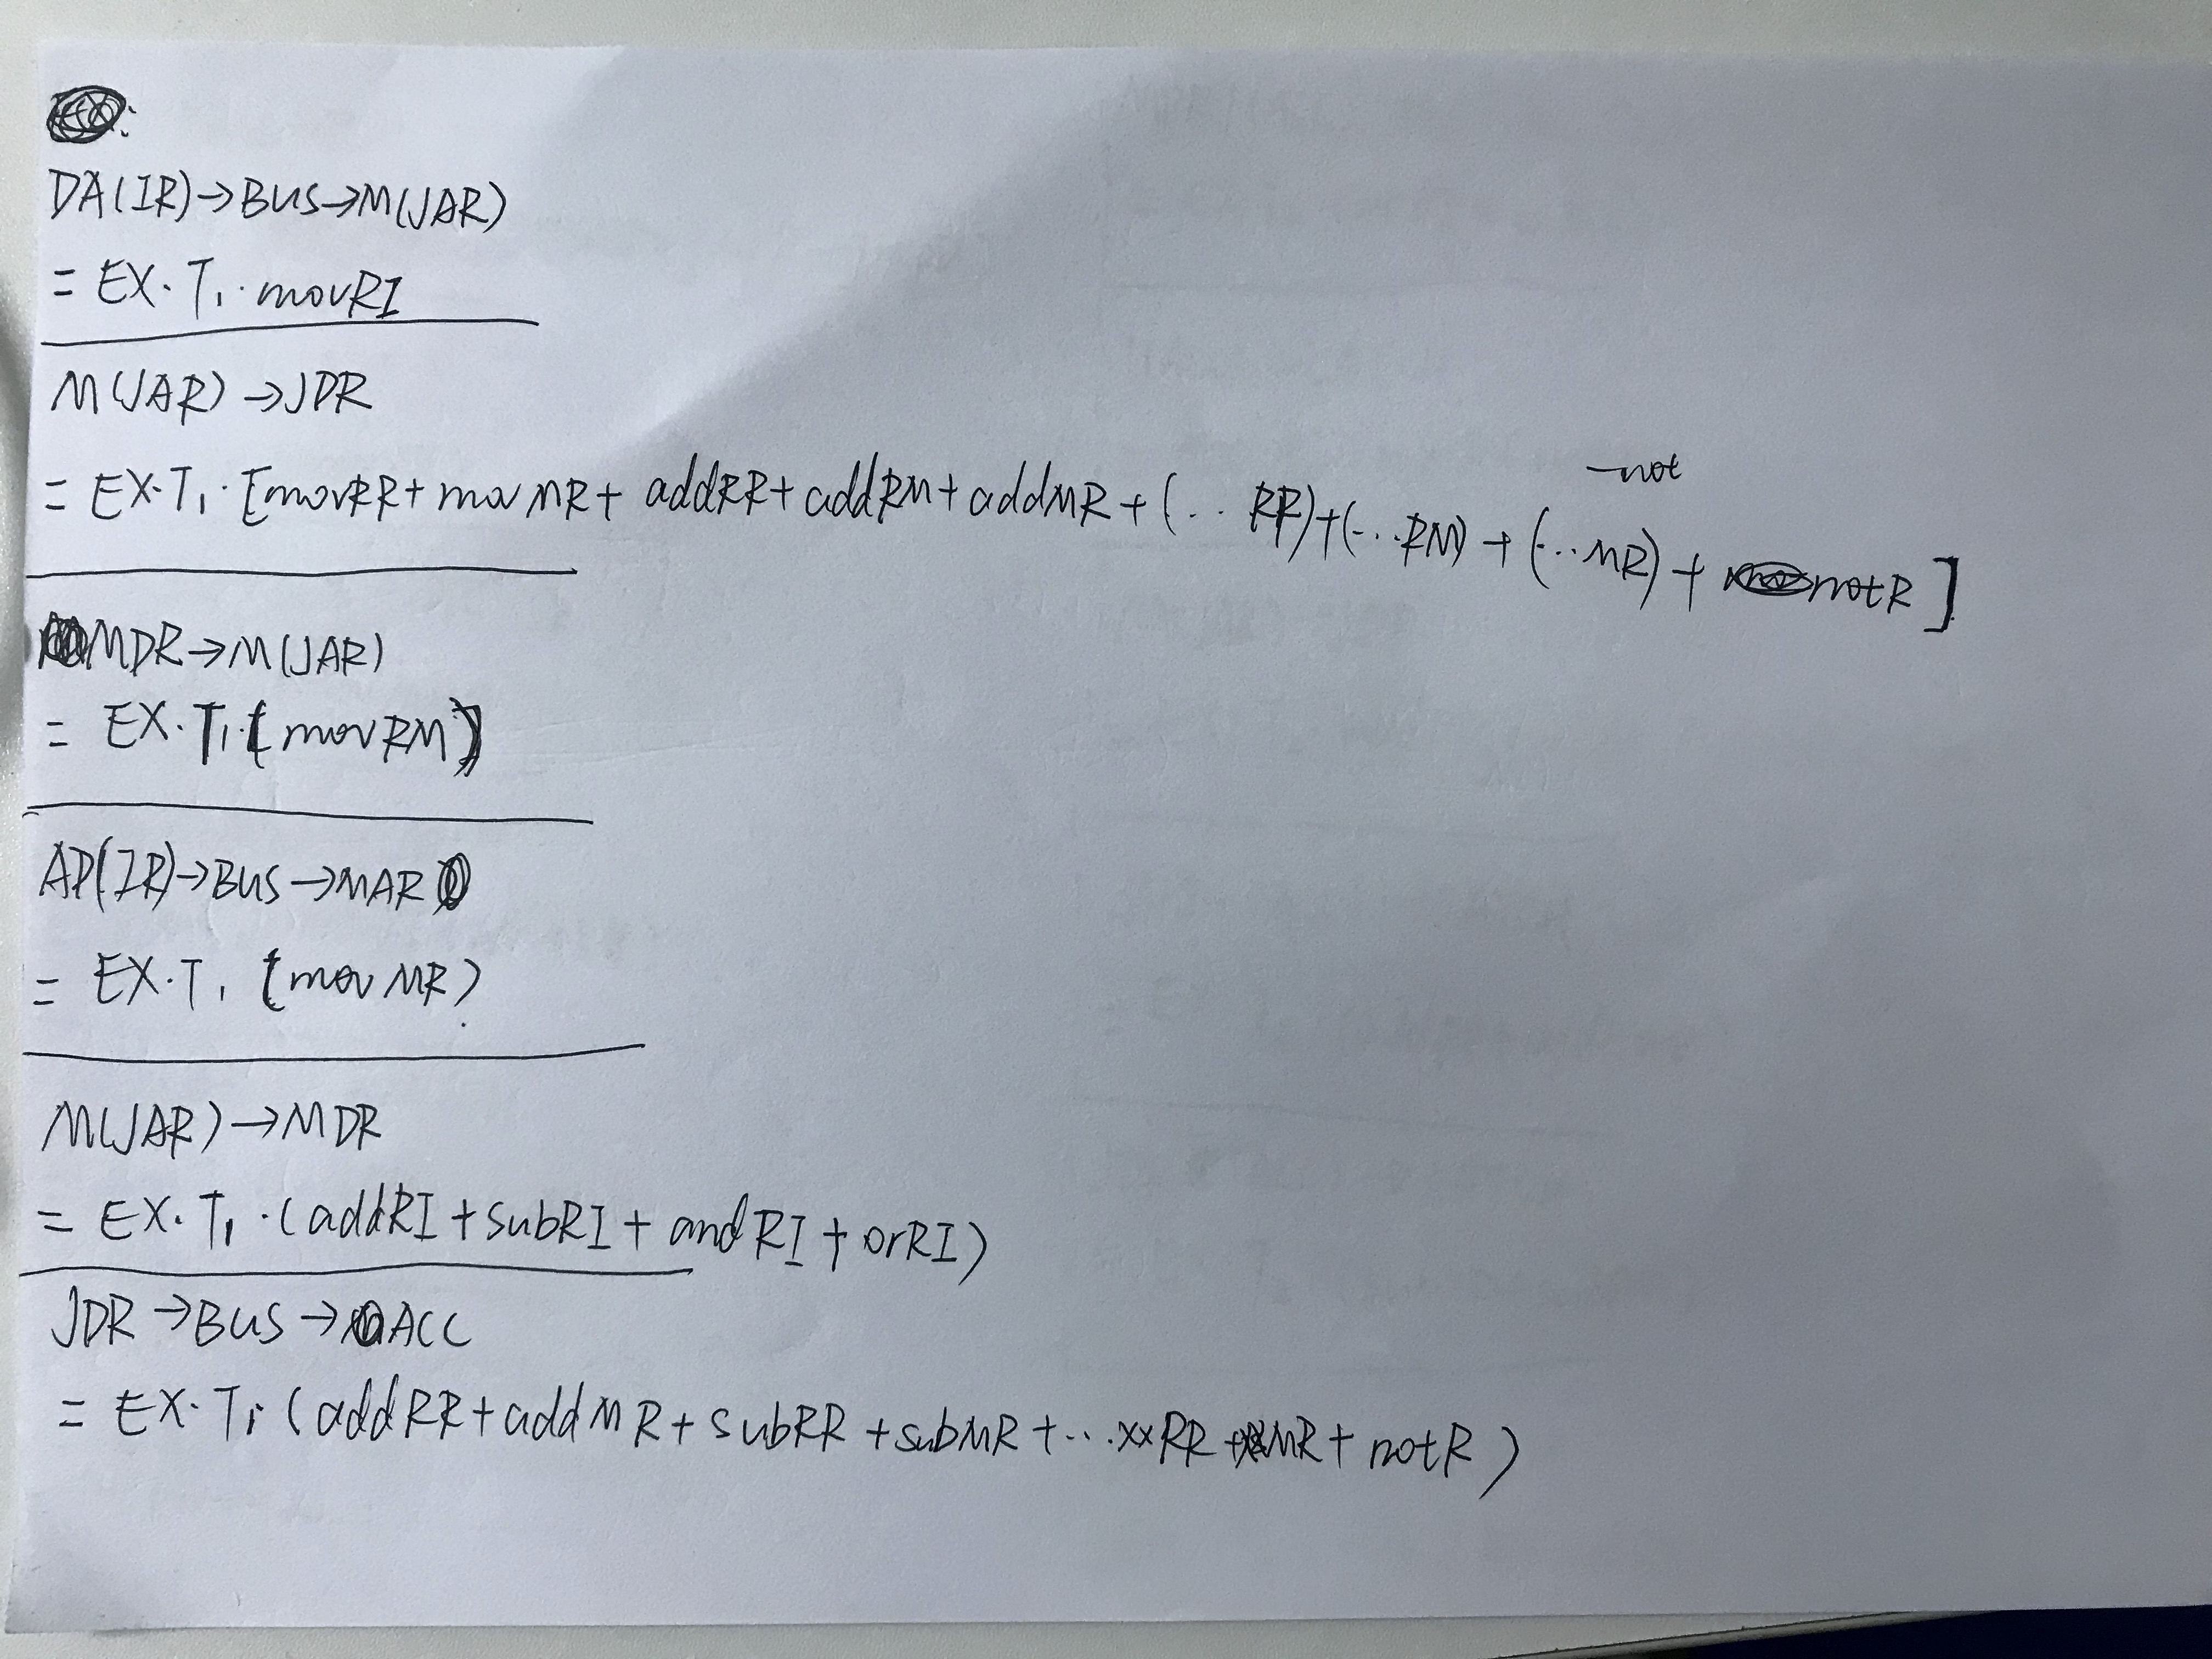 DA(IR)→BUS→M(JAR)
= EX·T₁·movRI
M(JAR)→JDR
-not
= EX·T₁·[movRR+movMR+addRR+addRM+addMR+(..RR)+(...RM)+(...MR)+notR]
MDR→M(JAR)
= EX·T₁·[movRM]
AD(IR)→BUS→MAR
= EX·T₁[movMR)
M(JAR)→MDR
= EX·T₁·(addRI+subRI+andRI+orRI)
JDR→BUS→ACC
= EX·T₁·(addRR+addMR+subRR+subMR+...xxRR+xxMR+notR)